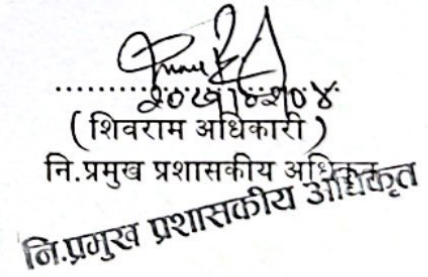 ( शिवराम अधिकारी )
नि.प्रमुख प्रशासकीय अधिकृत
नि.प्रमुख प्रशासकीय अधिकृत